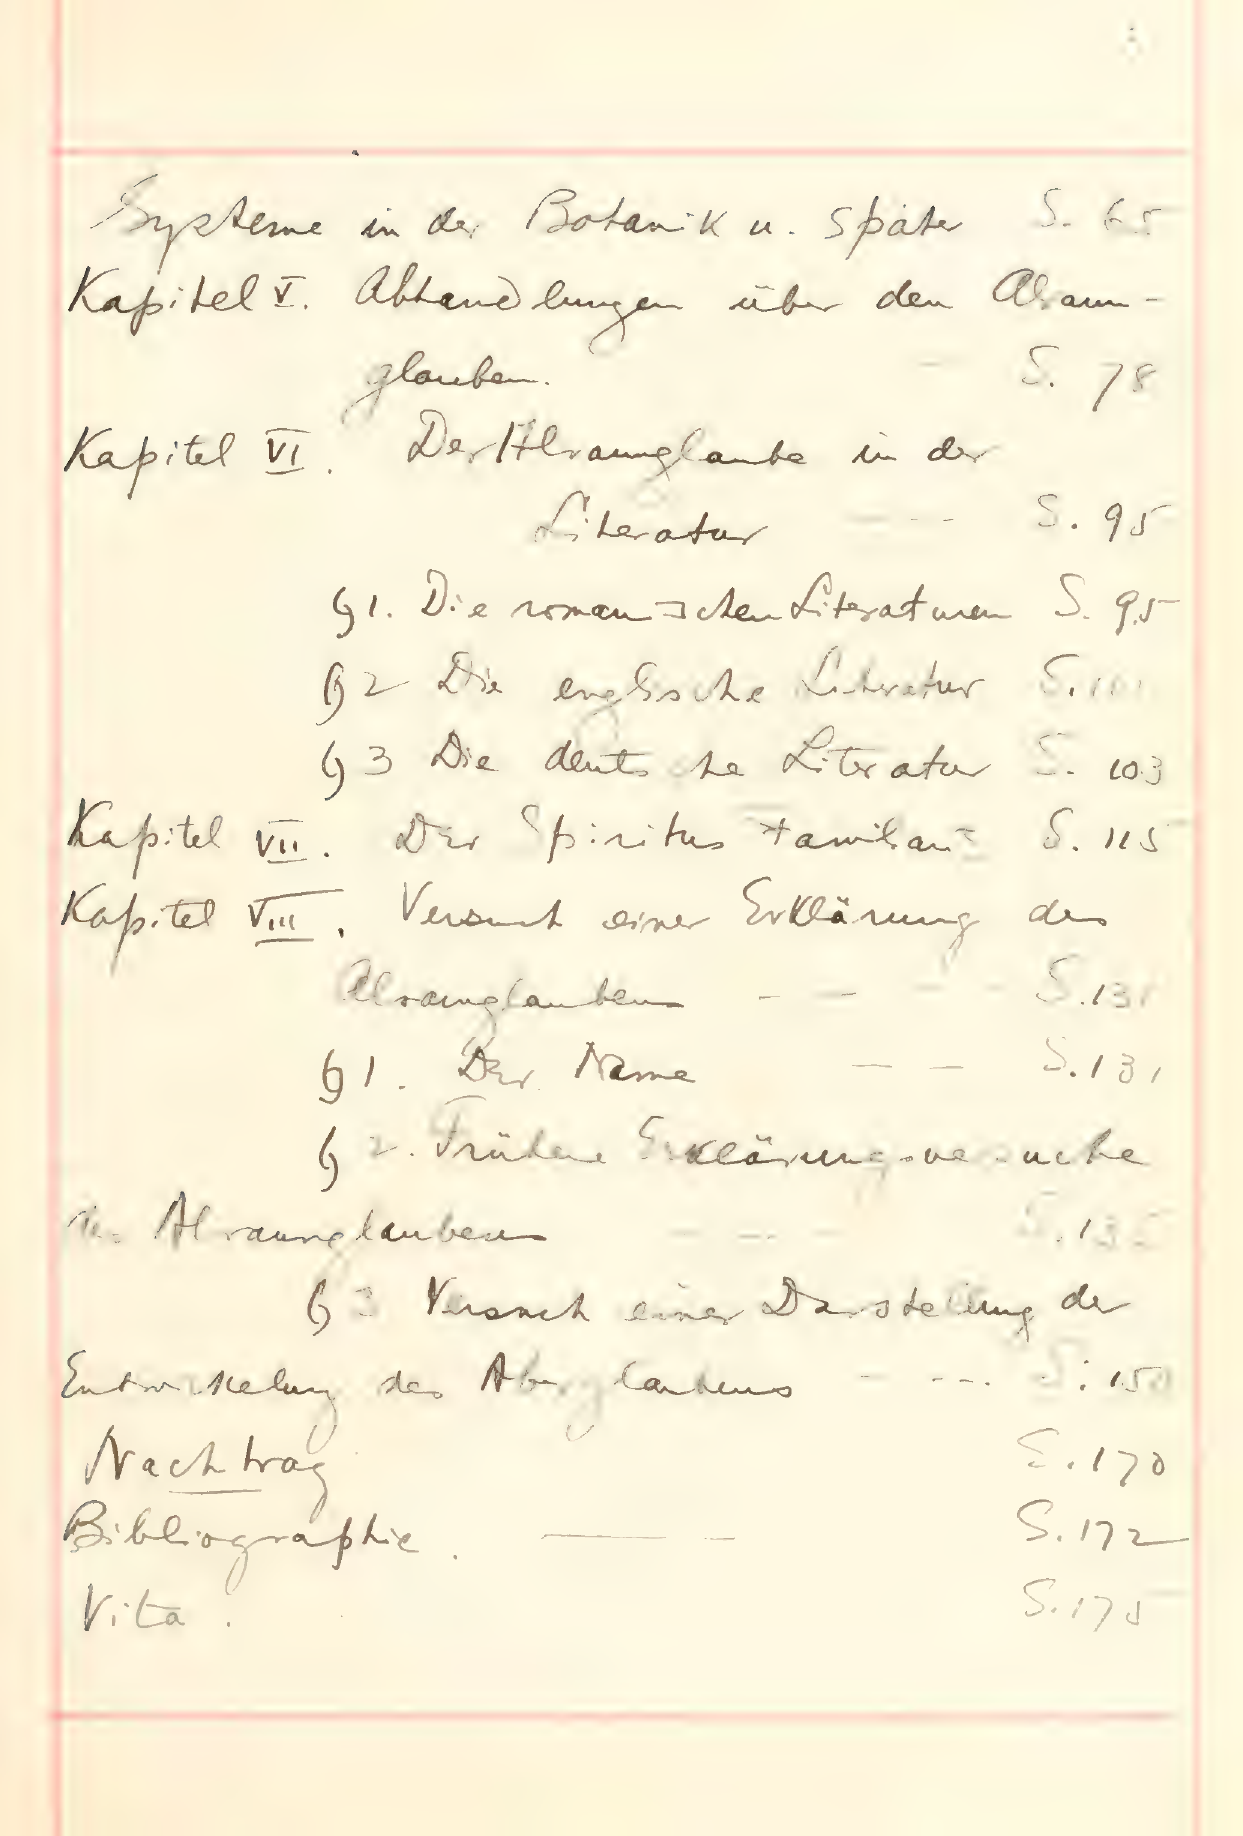 Systeme in der Botanik u. später S. 65
Kapitel V. Abhandlungen über den Alraun-
glauben. - S. 78
Kapitel VI. Der Alraunglaube in der
Literatur - - - S. 95
§ 1. Die romanischen Literaturen S. 95
§ 2 Die englische Literatur S. 101
§ 3 Die deutsche Literatur S. 103
Kapitel VII. Der Spiritus Familiaris S. 115
Kapitel VIII. Versuch einer Erklärung des
Alraunglaubens - - - - S. 131
§ 1. Der Name - - S. 131
§ 2. Frühere Erklärungsversuche
des Alraunglaubens - - - - S. 135
§ 3 Versuch einer Darstellung der
Entwickelung des Aberglaubens - --- S. 150
Nachtrag S. 170
Bibliographie. — - S. 172
Vita. S. 175